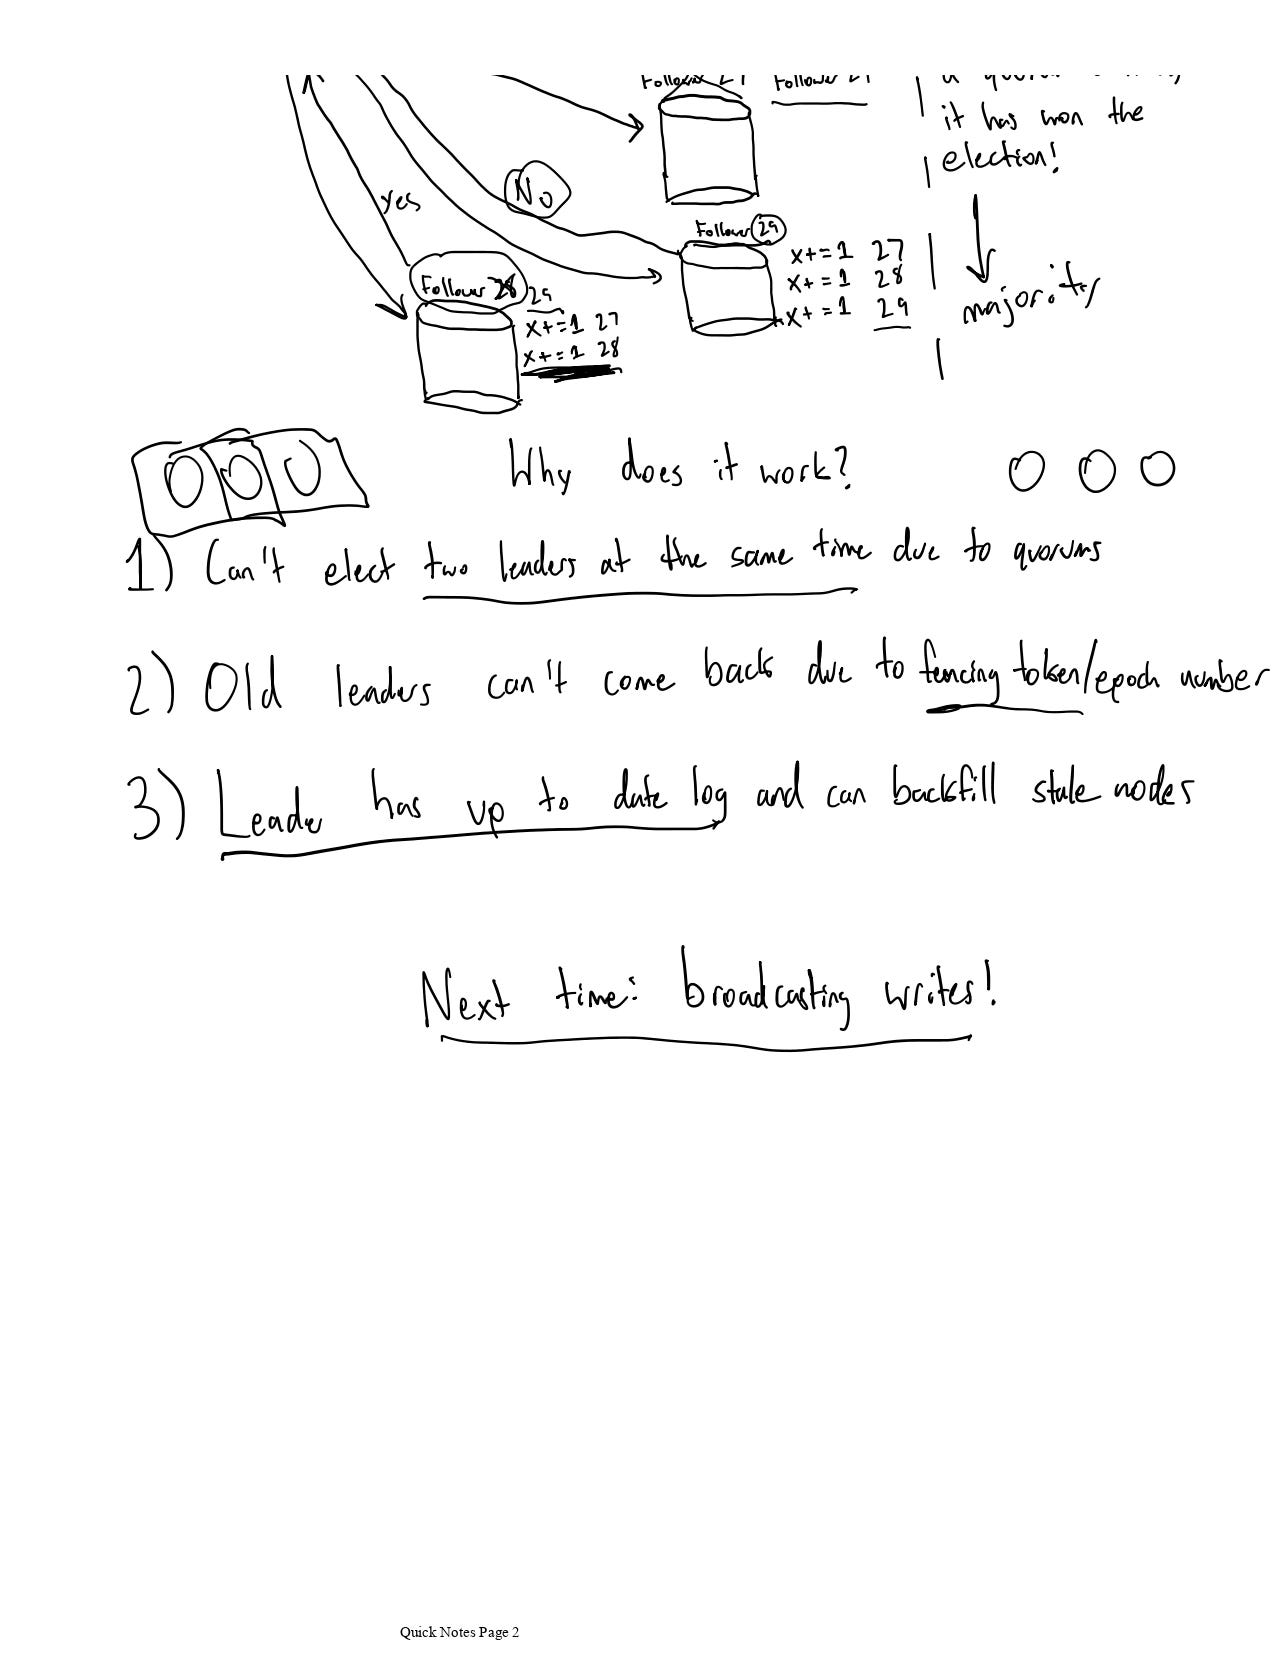 Follower 27 Follower 27
it has won the
election!
Yes
No
Follower 29
x+=1 27
x+=1 28
x+=1 29
majority
Follower 28 29
x+=1 27
x+=1 28
Why does it work?
1) Can't elect two leaders at the same time due to quorums
2) Old leaders can't come back due to fencing token/epoch number
3) Leader has up to date log and can backfill stale nodes
Next time: broadcasting writes!
Quick Notes Page 2